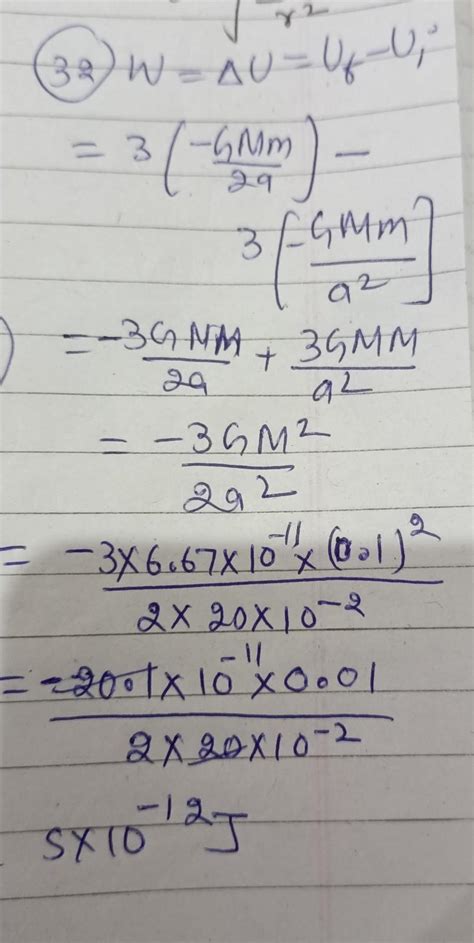 r²
(32) W = ΔU = Uf - Ui
= 3 (-GMm/2a) -
3 [-GMm/a²]
= -3GMM/2a + 3GMM/a²
= -3GM²/2a²
= -3×6.67×10⁻¹¹×(0.1)²/2×20×10⁻²
= -20.1×10⁻¹¹×0.01/2×20×10⁻²
5×10⁻¹²J